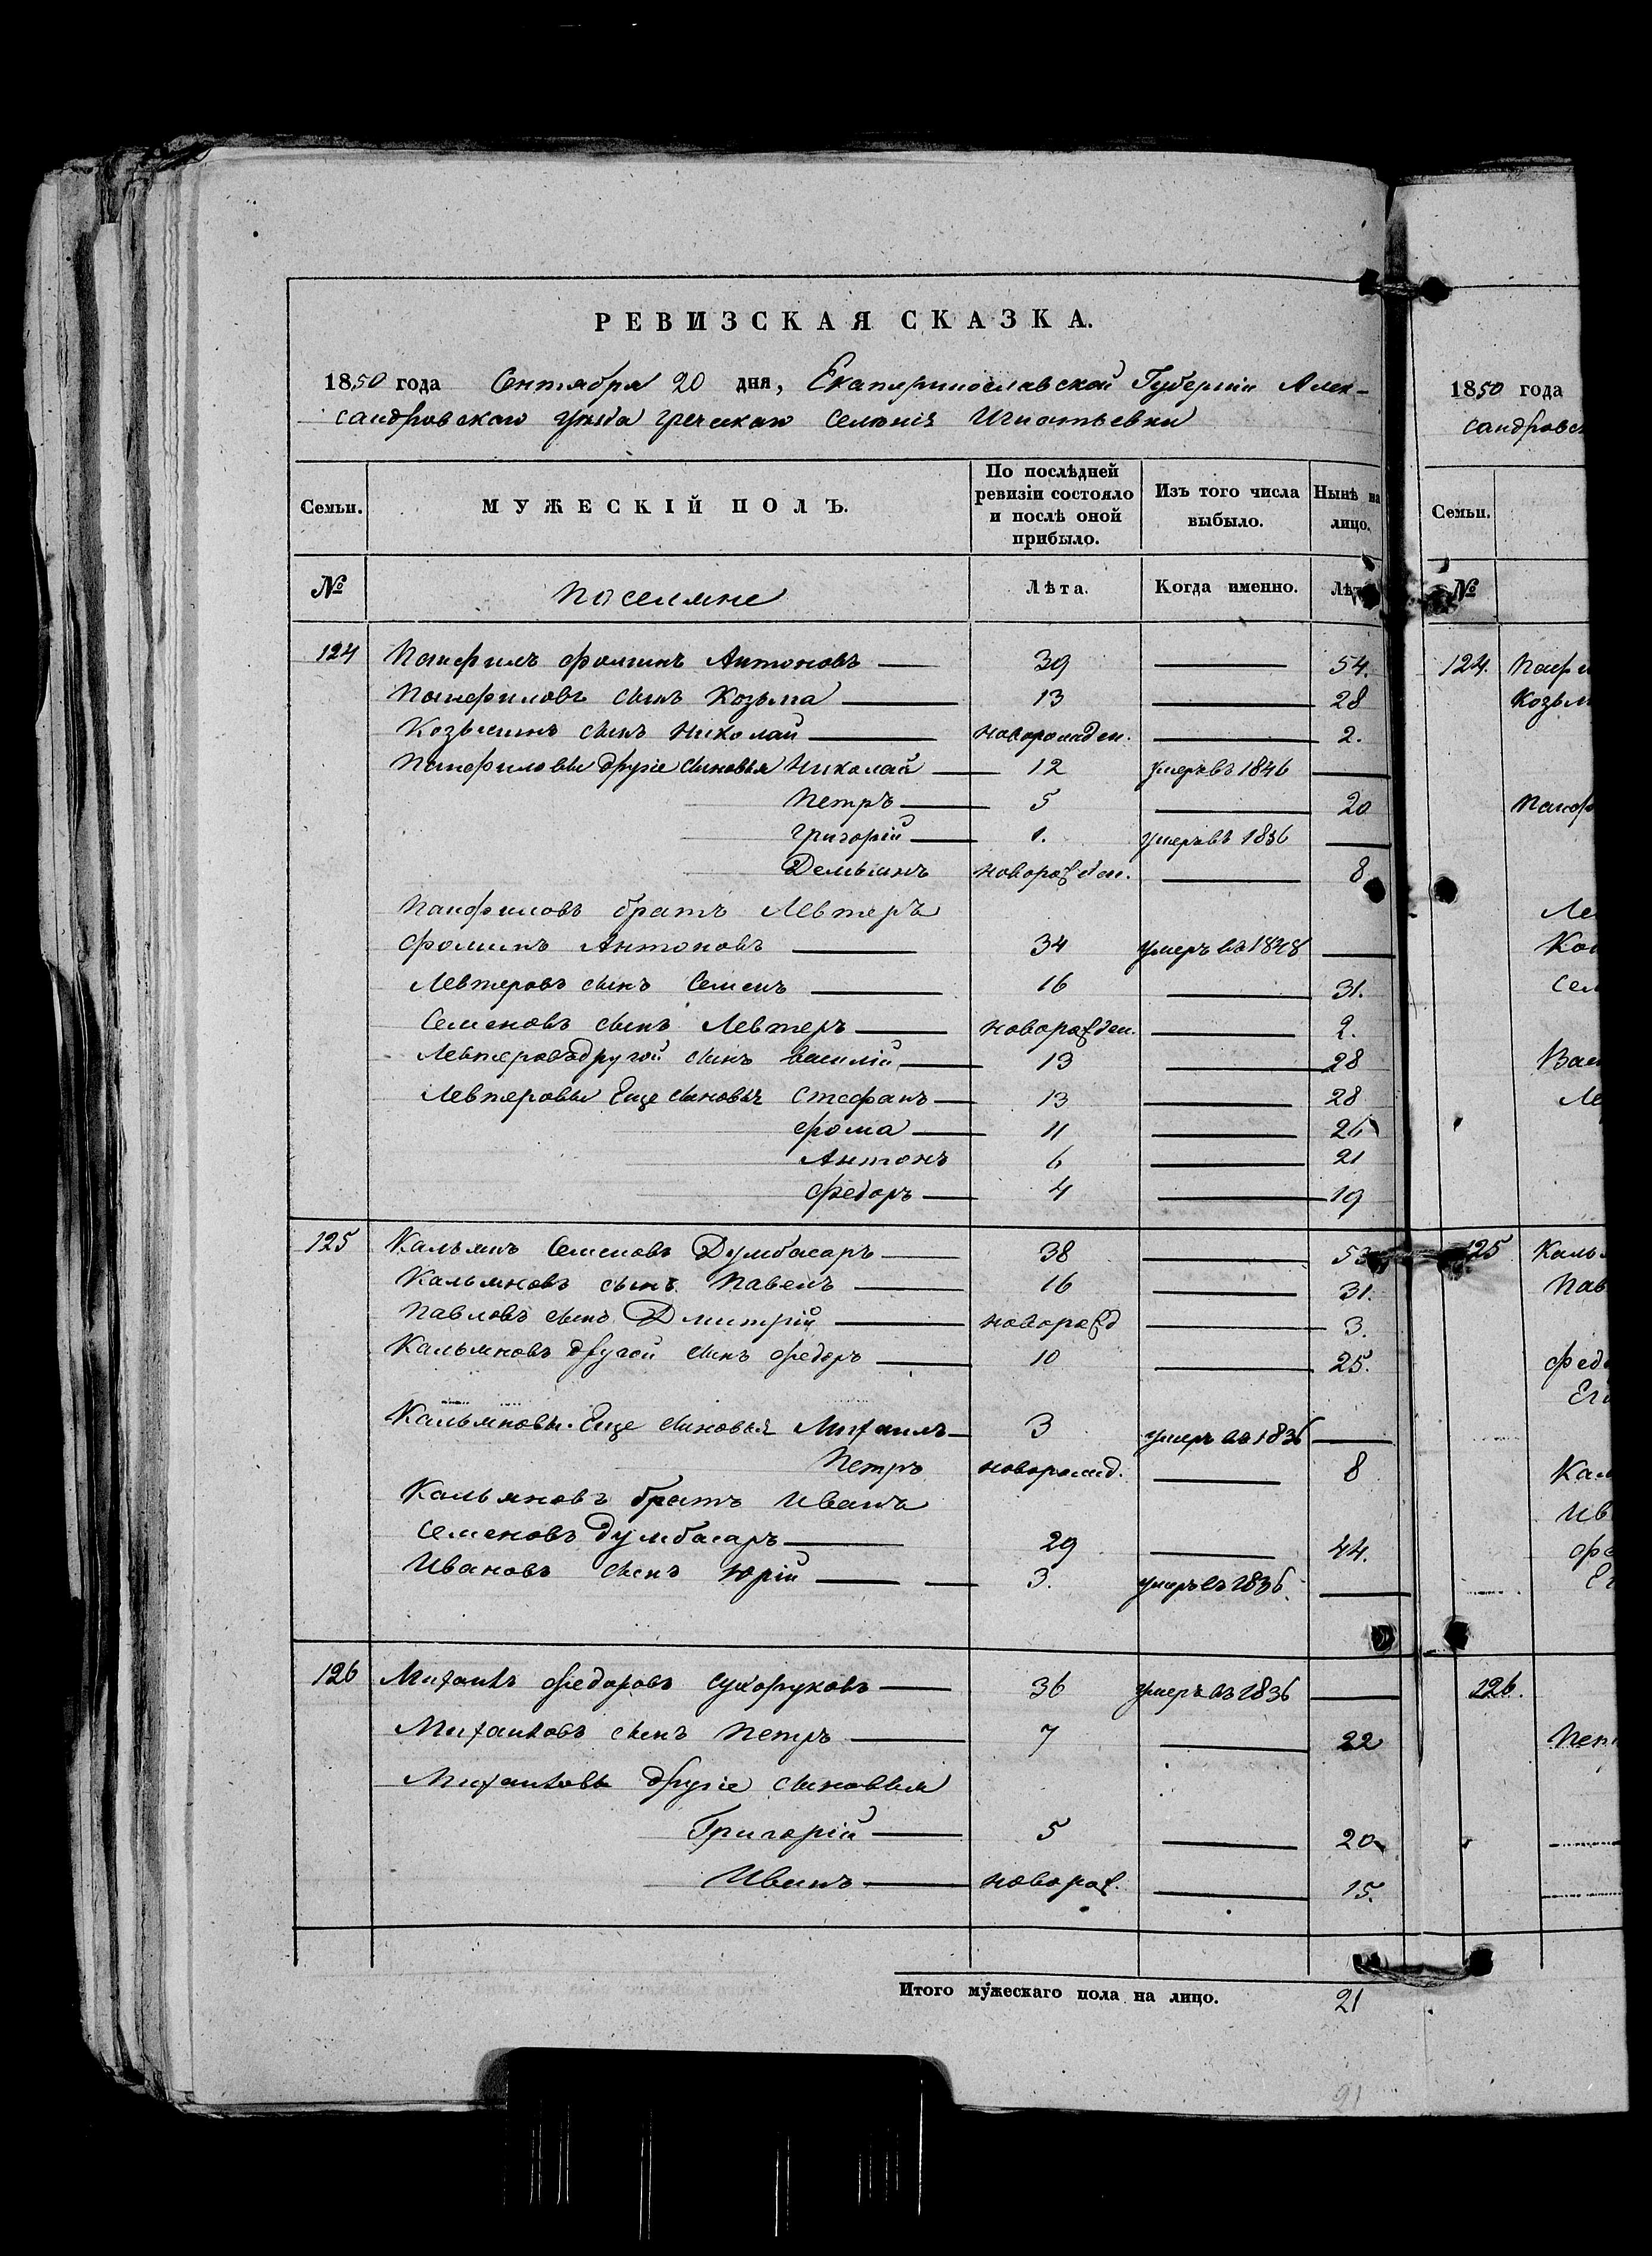 РЕВИЗСКАЯ СКАЗКА.
1850 года Сентября 20 дня, Екатеринославской Губерніи Алек-
сандровскаго уезда греческаго селенія Игнатьевки
Семьи. МУЖЕСКІЙ ПОЛЪ. По послѣдней ревизіи состояло и послѣ оной прибыло. Изъ того числа выбыло. Нынѣ на лицо.
№ Поселяне Лѣта. Когда именно. Лѣт
124 Панфилъ Фоминъ Антоновъ — 39 — 54.
Панфиловъ сынъ Козьма — 13 — 28
Козьминъ сынъ Николай — новорожден. — 2.
Панфиловы другіе сыновья Николай — 12 умеръ въ 1846 —
Петръ — 5 — 20
Григорій — 1. умеръ въ 1836 —
Демьянъ новорожден. — 8
Панфиловъ братъ Левтеръ
Фоминъ Антоновъ — 34 умеръ въ 1848 —
Левтеровъ сынъ Семенъ — 16 — 31.
Семеновъ сынъ Левтеръ — новорожден. — 2.
Левтеровъ другой сынъ Василій — 13 — 28
Левтеровы Еще сыновья Стефанъ — 13 — 28
Фома — 11 — 26
Антонъ 6 — 21
Федоръ — 4 — 19
125 Кальянъ Семеновъ Думбасаръ — 38 — 53
Кальяновъ сынъ Павелъ — 16 — 31.
Павловъ сынъ Дмитрій — новорожд — 3.
Кальяновъ другой сынъ Федоръ — 10 — 25.
Кальяновы Еще сыновья Михаилъ — 3 умеръ въ 1836 —
Петръ новорожд. — 8
Кальяновъ братъ Иванъ
Семеновъ Думбасаръ — 29 — 44.
Ивановъ сынъ Юрій — — 3. умеръ въ 1836. —
126 Михаилъ Федоровъ Сухоруковъ — 36 умеръ въ 1836 —
Михаиловъ сынъ Петръ — 7 — 22
Михаиловы другіе сыновья
Григорій — 5 — 20
Иванъ — новорож. — 15.
Итого мужескаго пола на лицо. 21
21
1850 года
сандровс
Семьи.
№
124.
Козьм
125
126.